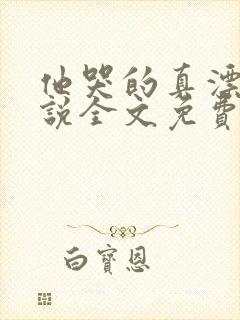 他哭的真漂
說全文免費
白寶恩